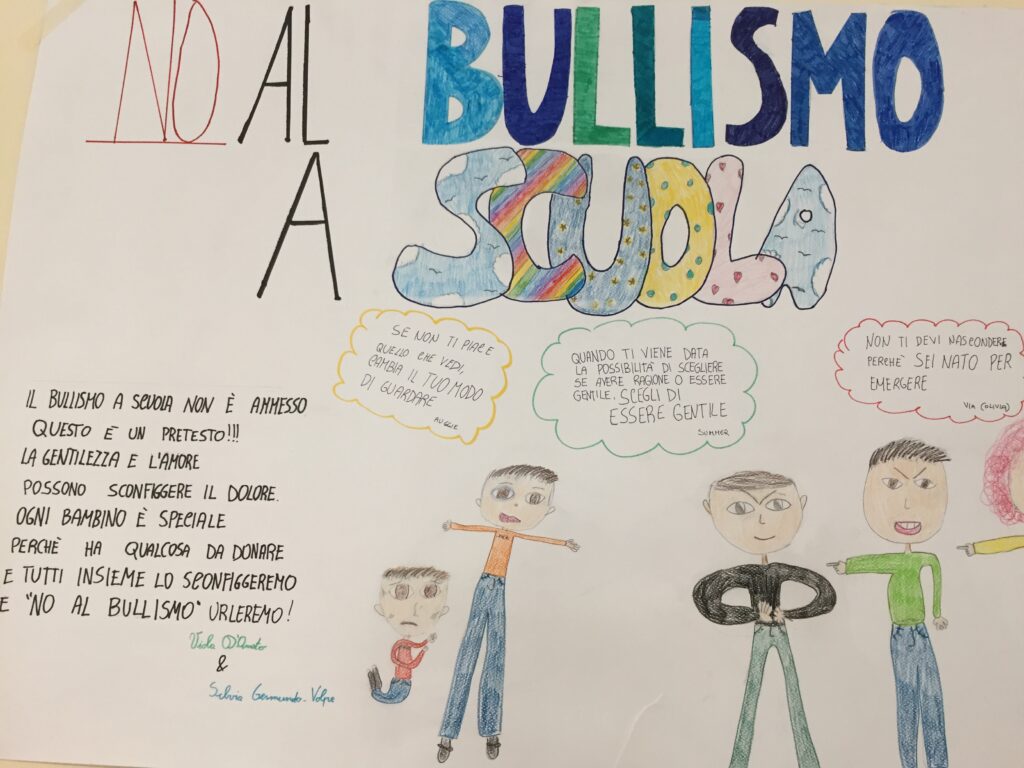 NO AL BULLISMO
A SCUOLA
SE NON TI PIACE
QUELLO CHE VEDI,
CAMBIA IL TUO MODO
DI GUARDARE
AUGGIE
QUANDO TI VIENE DATA
LA POSSIBILITÀ DI SCEGLIERE
SE AVERE RAGIONE O ESSERE
GENTILE, SCEGLI DI
ESSERE GENTILE
SUMMER
NON TI DEVI NASCONDERE
PERCHÈ SEI NATO PER
EMERGERE
VIA (OLIVIA)
IL BULLISMO A SCUOLA NON È AMMESSO
QUESTO È UN PRETESTO!!!
LA GENTILEZZA E L'AMORE
POSSONO SCONFIGGERE IL DOLORE.
OGNI BAMBINO È SPECIALE
PERCHÈ HA QUALCOSA DA DONARE
E TUTTI INSIEME LO SCONFIGGEREMO
E "NO AL BULLISMO" URLEREMO!
Viola D'Amato
&
Silvia Germundo-Volpe